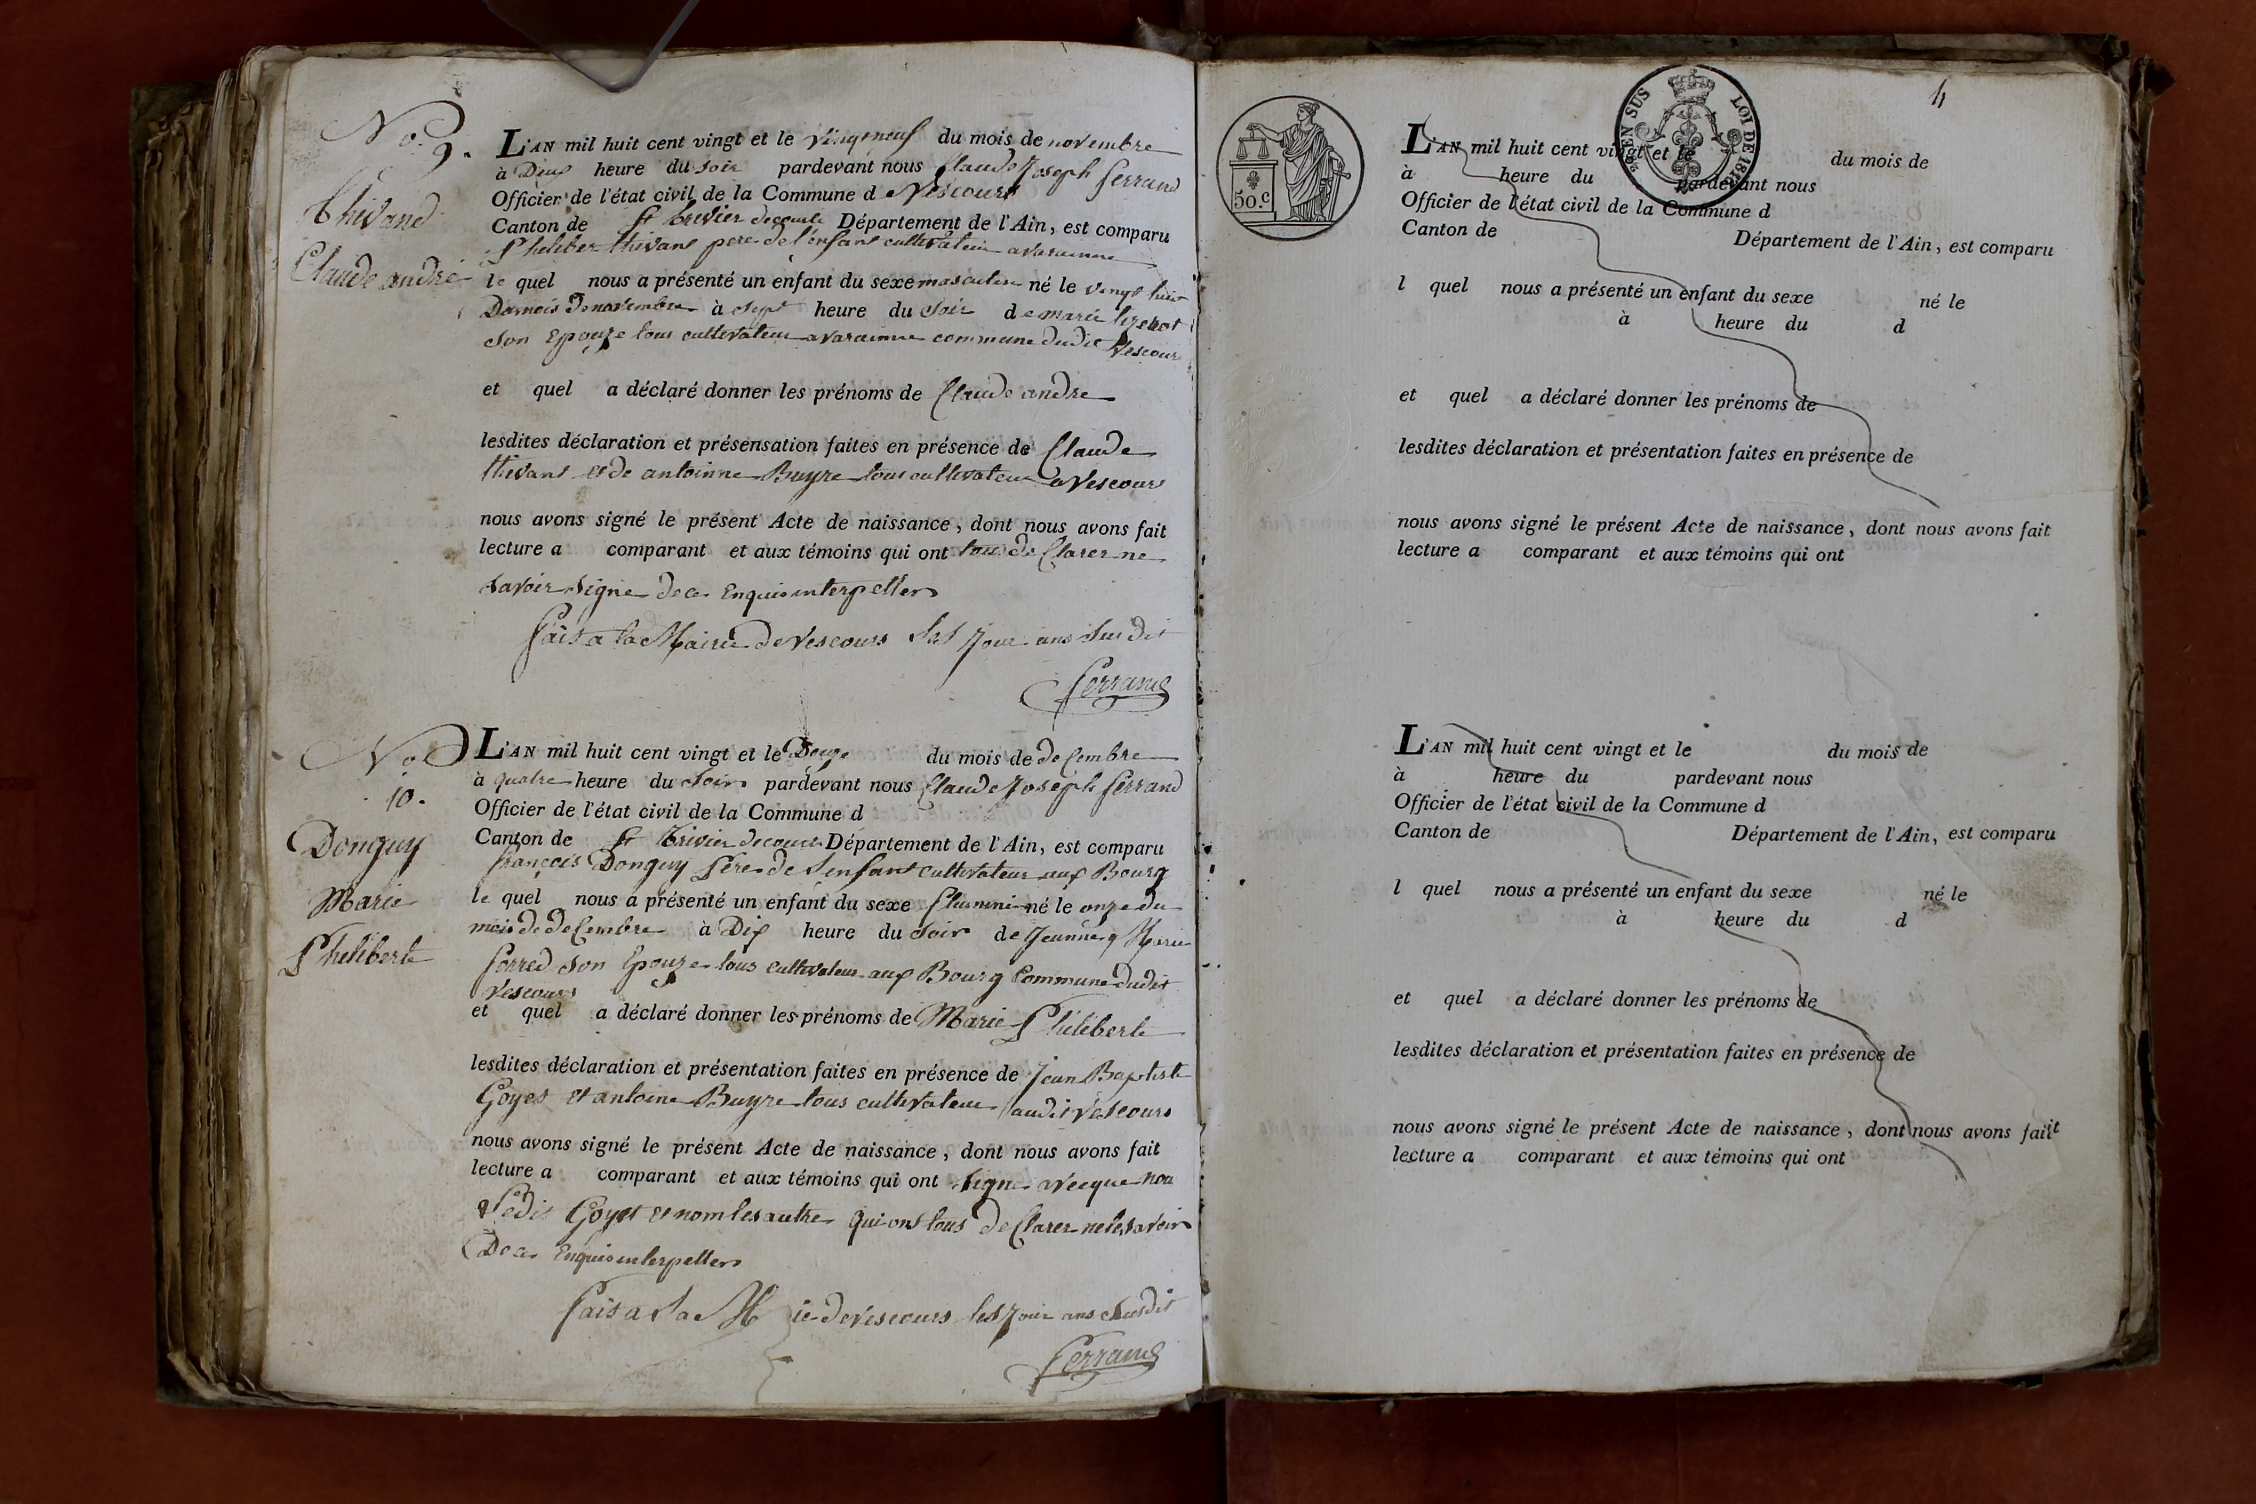 No. 9.
thivand
Claude andré
L'AN mil huit cent vingt et le vingneuf du mois de novembre
à Deux heure du soir pardevant nous Claude Joseph ferrand
Officier de l'état civil de la Commune d e Vescours
Canton de st trivier decourte Département de l'Ain, est comparu
Philiber thivant pere de l'enfant cultivateur a varainne
le quel nous a présenté un enfant du sexe masculin né le vingt huit
Dumois De novembre à sept heure du soir de marie
son Epouze tous cultivateur a varainne commune dudit Vescour
et quel a déclaré donner les prénoms de Claude andre
lesdites déclaration et présensation faites en présence de Claude
thivant et de antoinne Buyre tous cultivateur a Vescours
nous avons signé le présent Acte de naissance, dont nous avons fait
lecture a comparant et aux témoins qui ont tous de Clarer ne
savoir signe de ce Enquis interpeller
fait a la Mairie de Vescours les Jour ans sus dit
ferrand
No
10.
Donguy
Marie
Philiberte
L'AN mil huit cent vingt et le Douze du mois de de Cembre
à quatre heure du soir pardevant nous Claude Joseph ferrand
Officier de l'état civil de la Commune d
Canton de st trivier decourte Département de l'Ain, est comparu
françois Donguy Père de l'enfant cultivateur aux Bourg
le quel nous a présenté un enfant du sexe né le onze du
mois de de Cembre à Dix heure du soir de Jeanne Marie
son Epouze tous cultivateur aux Bourg Commune dudit
Vescours
et quel a déclaré donner les prénoms de Marie Philiberte
lesdites déclaration et présentation faites en présence de Jean Baptiste
Goyet et antoine Buyre tous cultivateur audit Vescours
nous avons signé le présent Acte de naissance, dont nous avons fait
lecture a comparant et aux témoins qui ont signe avecque nou
ledit Goyet et nom les autre qui ont tous de Clarer ne le savoir
De ce Enquis interpeller
fait a la M ie de Vescours les Jour ans susdit
ferrand
4
50.c
EN SUS LOI DE 1816
L'AN mil huit cent vingt et le du mois de
à heure du pardevant nous
Officier de l'état civil de la Commune d
Canton de Département de l'Ain, est comparu
l quel nous a présenté un enfant du sexe né le
à heure du d
et quel a déclaré donner les prénoms de
lesdites déclaration et présentation faites en présence de
nous avons signé le présent Acte de naissance, dont nous avons fait
lecture a comparant et aux témoins qui ont
L'AN mil huit cent vingt et le du mois de
à heure du pardevant nous
Officier de l'état civil de la Commune d
Canton de Département de l'Ain, est comparu
l quel nous a présenté un enfant du sexe né le
à heure du d
et quel a déclaré donner les prénoms de
lesdites déclaration et présentation faites en présence de
nous avons signé le présent Acte de naissance, dont nous avons faiit
lecture a comparant et aux témoins qui ont